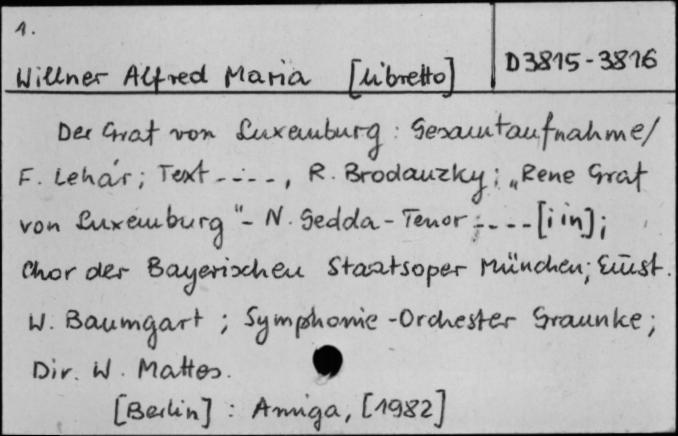 1.
Willner Alfred Maria [libretto]
D3815-3816
Der Graf von Luxemburg: Gesamtaufnahme/
F. Lehár; Text -.-.-, R. Brodauzky; „Rene Graf
von Luxemburg"- N. Gedda - Tenor;---- [i in];
Chor der Bayerischen Staatsoper München; Einst.
W. Baumgart; Symphonie-Orchester Graunke;
Dir. W. Mattes.
[Berlin]: Amiga, [1982]